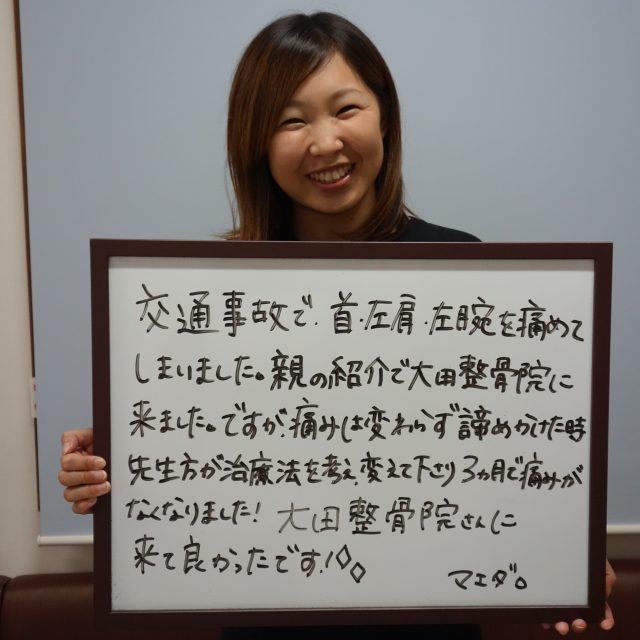 交通事故で、首・左肩・左腕を痛めて
しまいました。親の紹介で大田整骨院に
来ました。ですが、痛みは変わらず諦めかけた時
先生方が治療法を考え、変えて下さり3ヵ月で痛みが
なくなりました!大田整骨院さんに
来て良かったです!◇◇
マエダ。